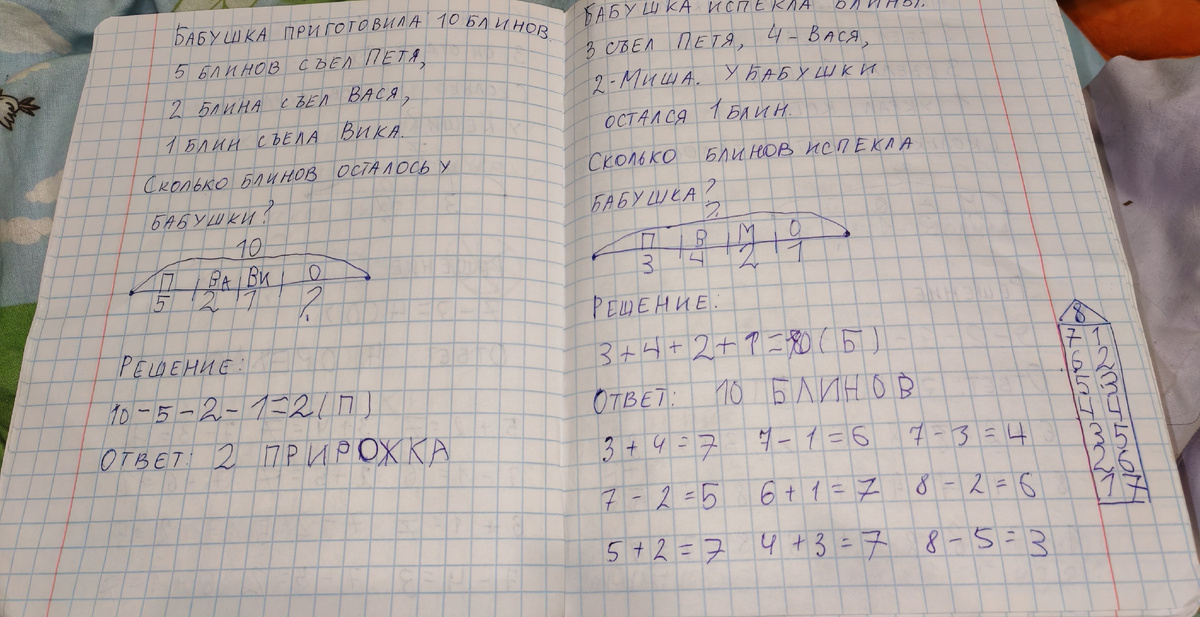 БАБУШКА ПРИГОТОВИЛА 10 БЛИНОВ.
5 БЛИНОВ СЪЕЛ ПЕТЯ,
2 БЛИНА СЪЕЛ ВАСЯ,
1 БЛИН СЪЕЛА ВИКА.
СКОЛЬКО БЛИНОВ ОСТАЛОСЬ У
БАБУШКИ?
10
П ВА ВИ О
5 2 1 ?
РЕШЕНИЕ:
10-5-2-1=2(П)
ОТВЕТ: 2 ПРИРОЖКА
БАБУШКА ИСПЕКЛА БЛИНЫ.
3 СЪЕЛ ПЕТЯ, 4-ВАСЯ,
2-МИША. У БАБУШКИ
ОСТАЛСЯ 1 БЛИН.
СКОЛЬКО БЛИНОВ ИСПЕКЛА
БАБУШКА?
?
П В М О
3 4 2 1
РЕШЕНИЕ:
3+4+2+1=10(Б)
ОТВЕТ: 10 БЛИНОВ
3+4=7 7-1=6 7-3=4
7-2=5 6+1=7 8-2=6
5+2=7 4+3=7 8-5=3
8
7 1
6 2
5 3
4 4
3 5
2 6
1 7